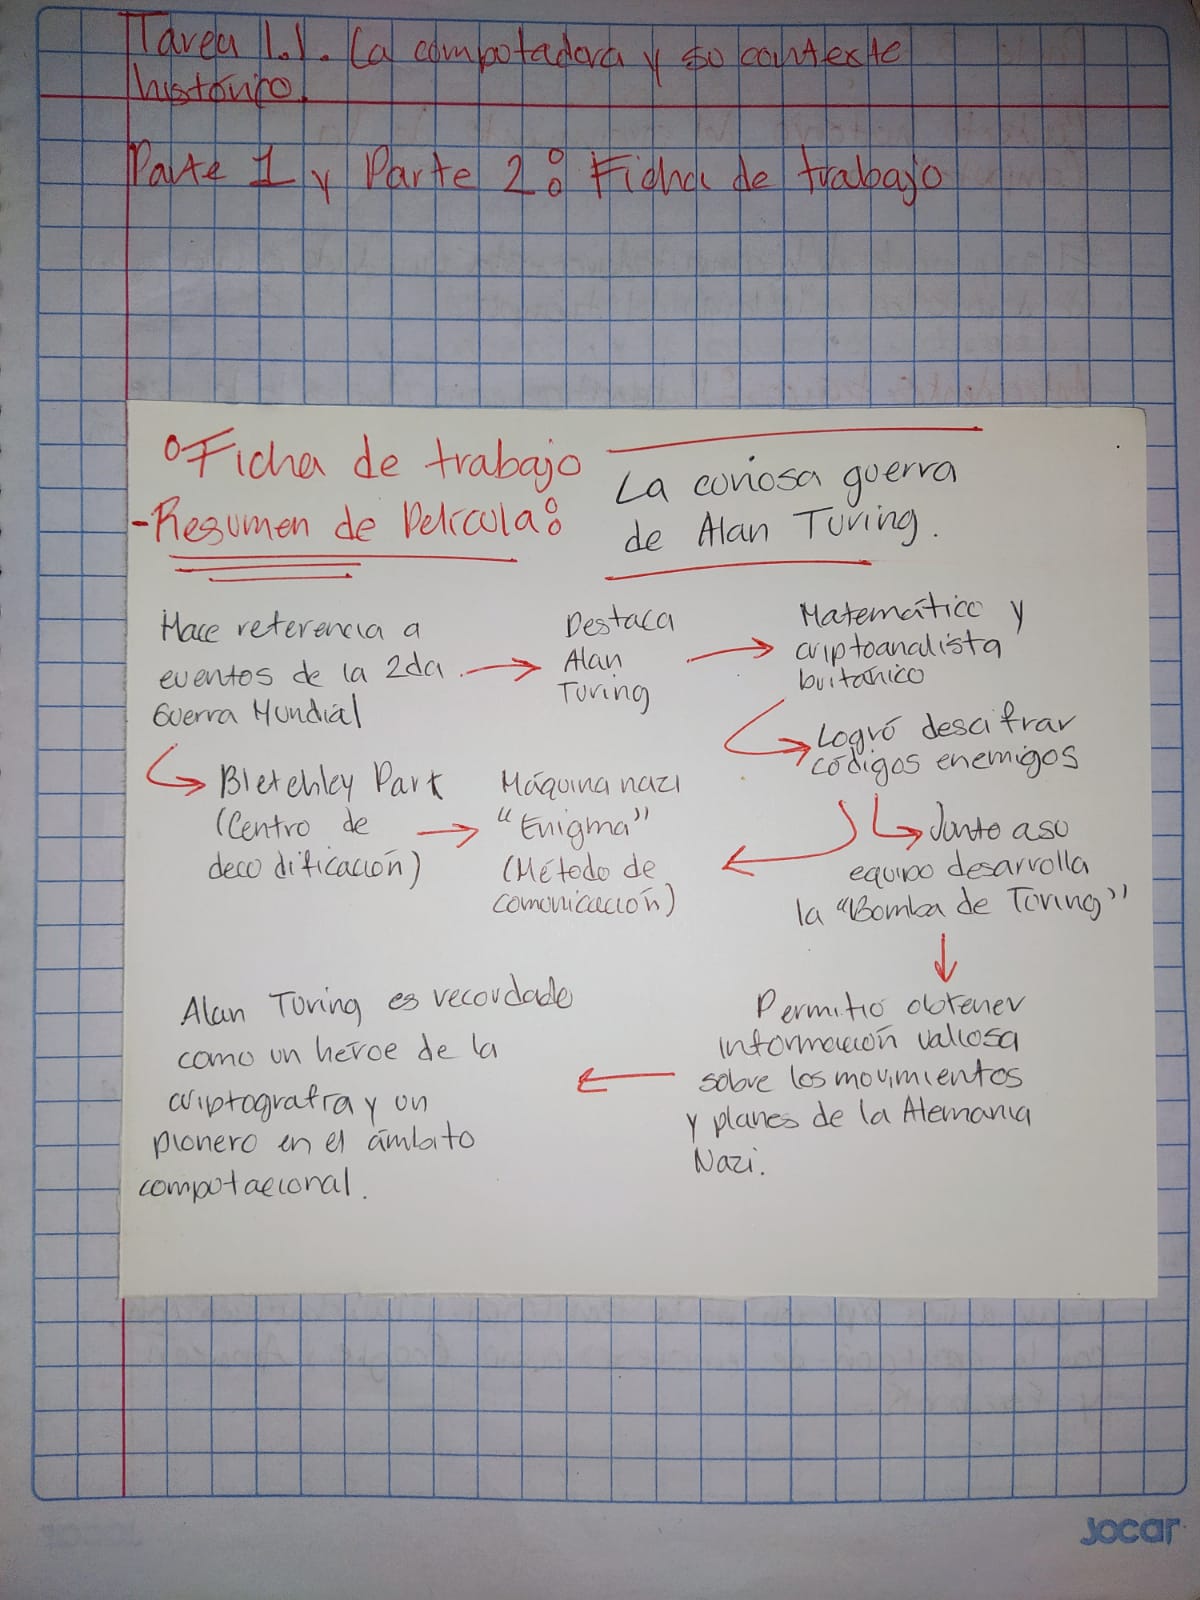 Tarea 1.1. La computadora y su contexto
histórico.
Parte 1 y Parte 2: Ficha de trabajo
Ficha de trabajo
-Resumen de Película:
La curiosa guerra
de Alan Turing.
Hace referencia a
eventos de la 2da
Guerra Mundial
Destaca
Alan
Turing
Matemático y
criptoanalista
británico
Logró descifrar
códigos enemigos
Bletchley Park
(Centro de
decodificación)
Máquina nazi
"Enigma"
(Método de
comunicación)
Junto a su
equipo desarrolla
la "Bomba de Turing"
Permitio obtener
información valiosa
sobre los movimientos
y planes de la Alemania
Nazi.
Alan Turing es recordado
como un héroe de la
criptografía y un
pionero en el ámbito
computacional.
Jocar